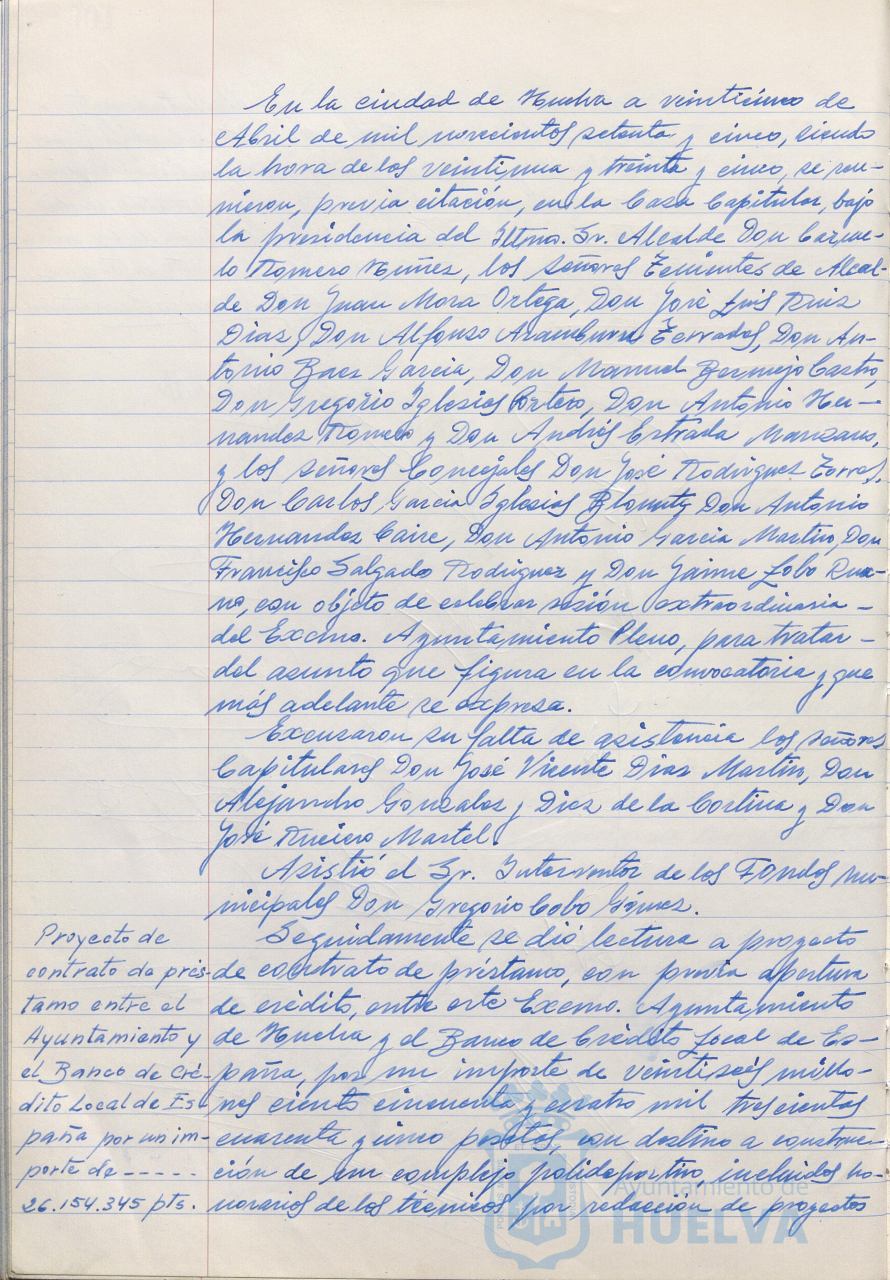 En la ciudad de Huelva a veinticinco de
Abril de mil novecientos setenta y cinco, siendo
la hora de los veintiuna y treinta y cinco, se reu-
nieron, previa citación, en la Casa Capitular, bajo
la presidencia del Iltmo. Sr. Alcalde Don Carme-
lo Romero Núñez, los señores Tenientes de Alcal-
de Don Juan Mora Ortega, Don José Luis Ruiz
Diaz, Don Alfonso Aramburu Terrados, Don An-
tonio Baez Garcia, Don Manuel Bermejo Castro,
Don Gregorio Iglesias Portero, Don Antonio Her-
nandez Romero y Don Andrés Estrada Manzano,
y los señores Concejales Don José Rodriguez Torres,
Don Carlos Garcia Iglesias Don Antonio
Hernandez Caire, Don Antonio Garcia Martin, Don
Francisco Salgado Rodriguez y Don Jaime Lobo Rua-
no, con objeto de celebrar sesión extraordinaria -
del Excmo. Ayuntamiento Pleno, para tratar -
del asunto que figura en la convocatoria y que
más adelante se expresa.
Excusaron su falta de asistencia los señores
Capitulares Don José Vicente Diaz Martin, Don
Alejandro Gonzalez y Diez de la Cortina y Don
José Martel.
Asistió el Sr. Interventor de los Fondos Mu-
nicipales Don Gregorio Cobo Gómez.
Proyecto de
contrato de prés-
tamo entre el
Ayuntamiento y
el Banco de Cré-
dito Local de Es-
paña por un im-
porte de -----
26.154.345 pts.
Seguidamente se dió lectura a proyecto
de contrato de préstamo, con previa apertura
de crédito, entre este Excmo. Ayuntamiento
de Huelva y el Banco de Crédito Local de Es-
paña, por un importe de veintiseis millo-
nes ciento cincuenta y cuatro mil trescientas
cuarenta y cinco pesetas, con destino a construc-
ción de un complejo polideportivo, incluidos ho-
norarios de los técnicos por redacción de proyectos
Ayuntamiento de
HUELVA